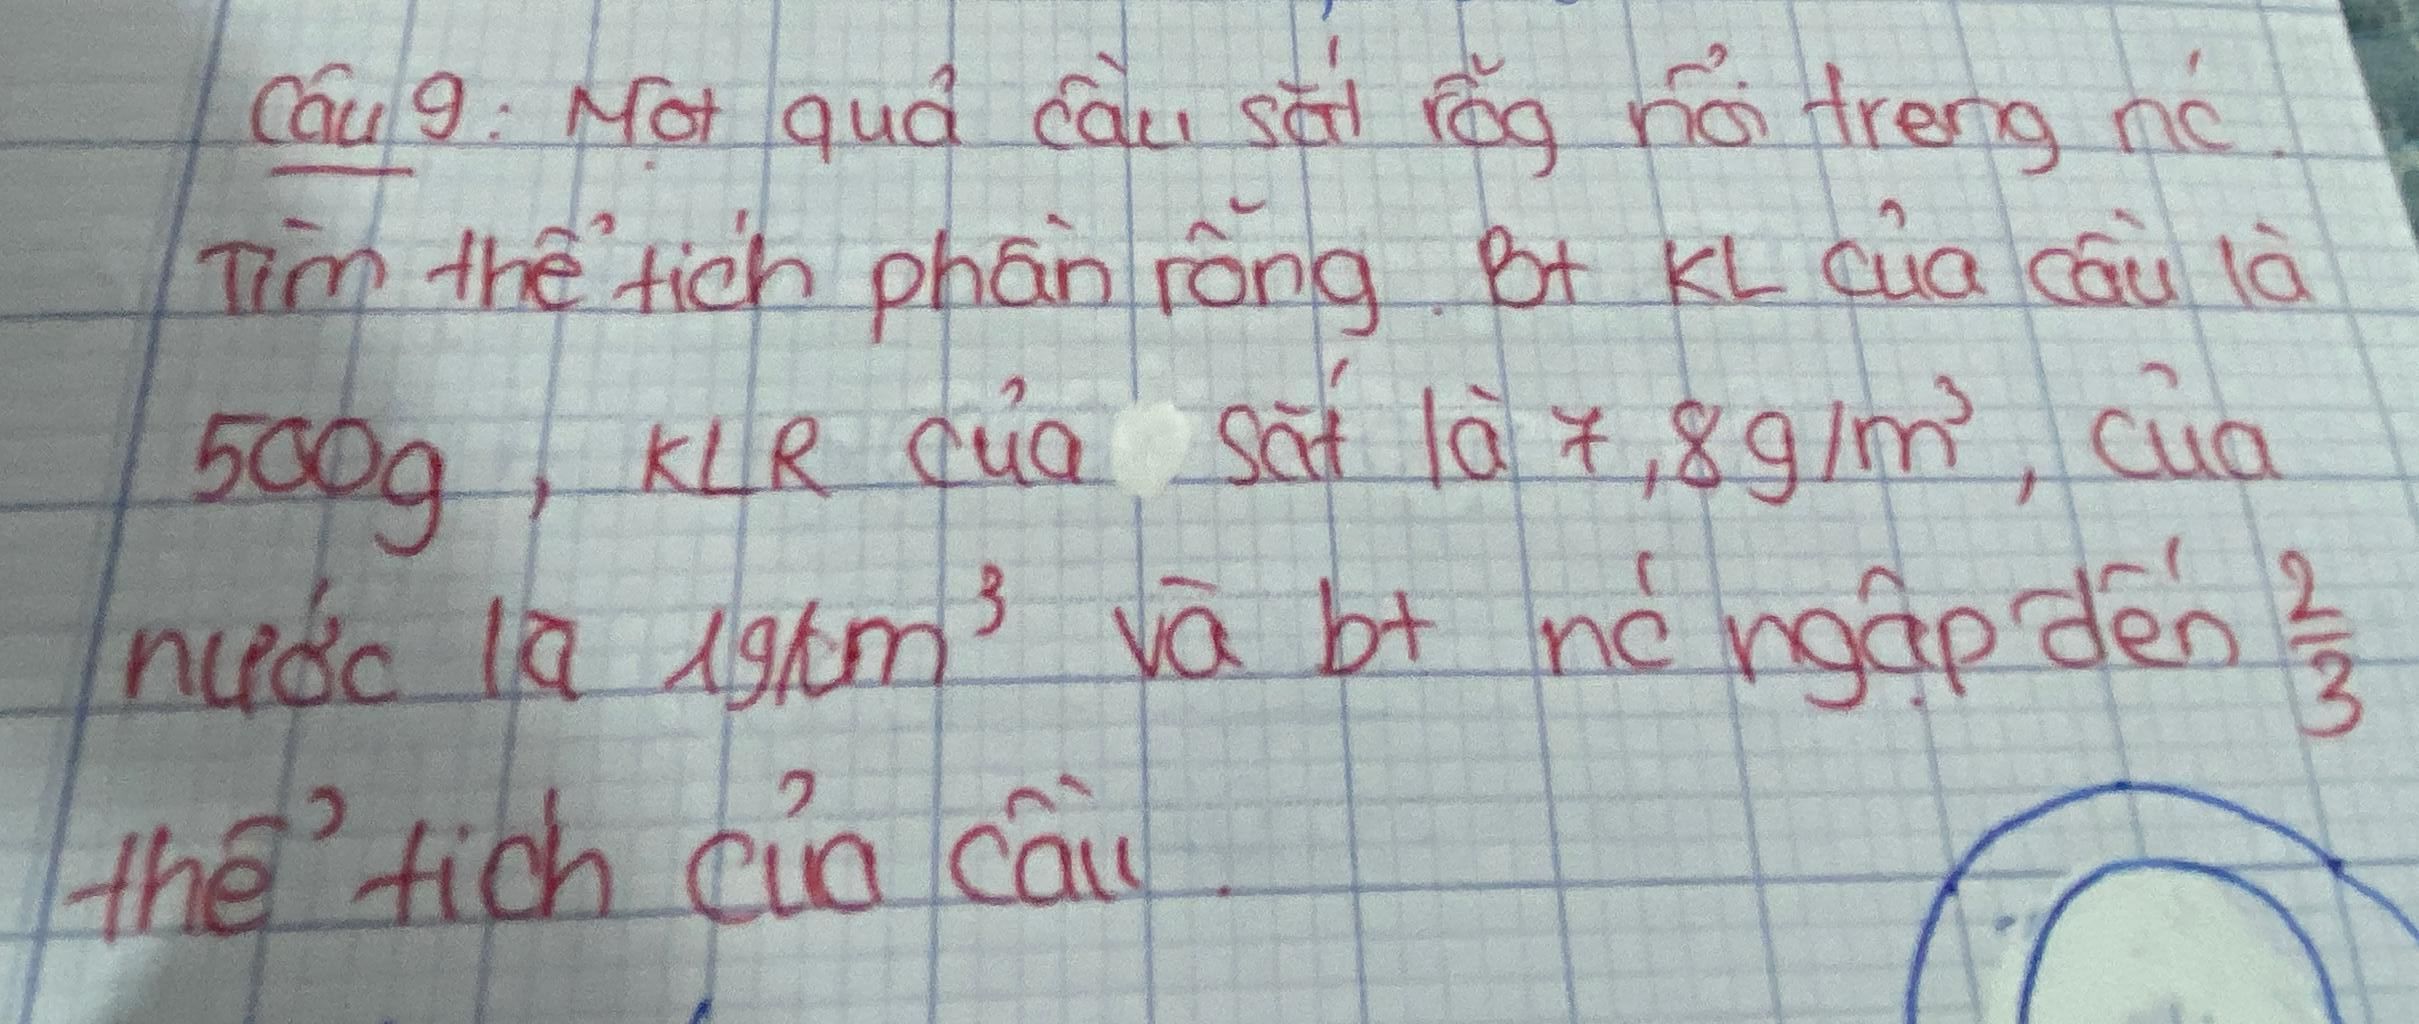 Câu 9: Một quả cầu sắt rỗg nổi trong nć.
Tìm thể tích phần rỗng. Bt KL của cầu là
500g, KLR của sắt là 7,8g/m³, của
nước là 1g/cm³ và bt nć ngập đến 2/3
thể tích của cầu.